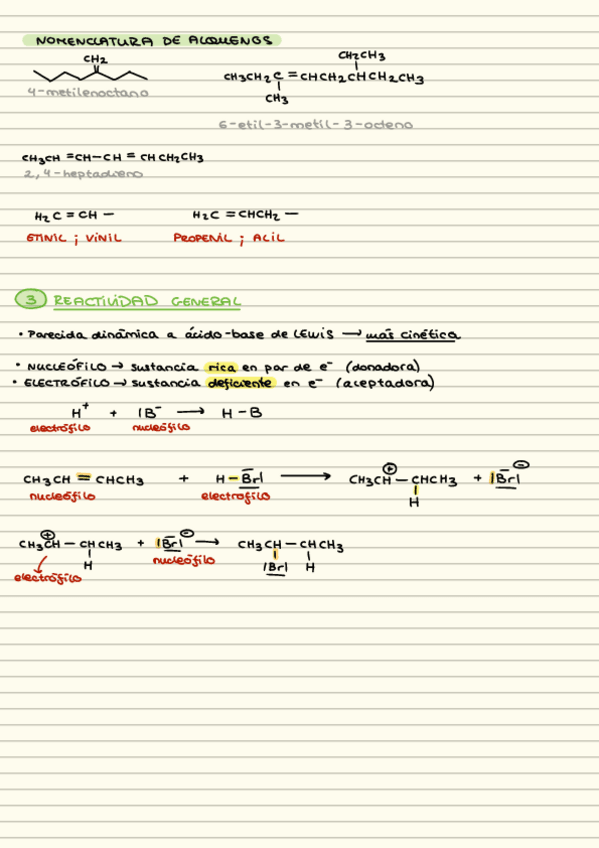 NOMENCLATURA DE ALQUENOS
CH2
4-metilenoctano
CH2CH3
CH3CH2C=CHCH2CHCH2CH3
CH3
6-etil-3-metil-3-octeno
CH3CH=CH-CH=CHCH2CH3
2,4-heptadieno
H2C=CH- H2C=CHCH2-
ETINIL ; VINIL PROPENIL ; ALIL
3 REACTIVIDAD GENERAL
• Parecida dinámica a ácido-base de LEWIS → más cinética
• NUCLEÓFILO → sustancia rica en par de e- (donadora)
• ELECTRÓFILO → sustancia deficiente en e- (aceptadora)
H+ + |B- → H-B
electrófilo nucleófilo
CH3CH=CHCH3 + H-Br| → CH3CH-CHCH3 + |Br|
⊕ ⊖
nucleófilo electrófilo
H
CH3CH-CHCH3 + |Br| → CH3CH-CHCH3
⊕ ⊖
H nucleófilo |Br| H
electrófilo